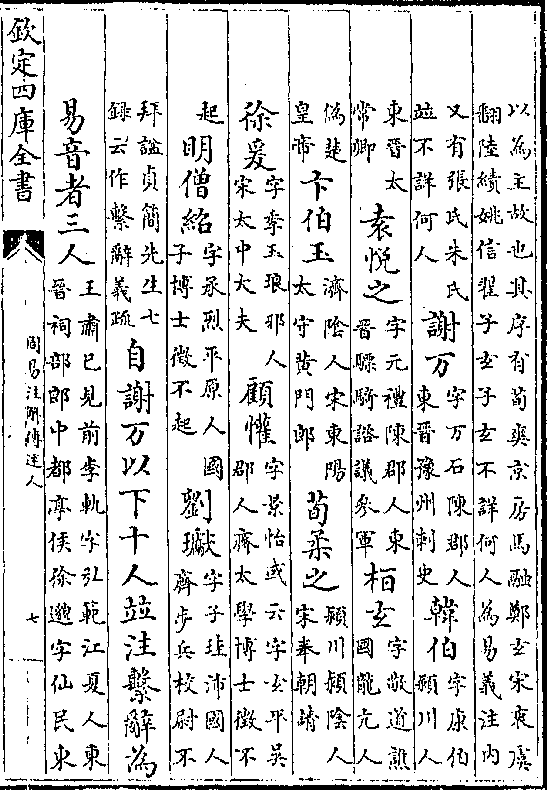 以為主故也其序有荀爽京房馬融鄭玄宋衷虞
翻陸績姚信翟子玄子玄不詳何人為易義注内
又有張氏朱氏並不詳何人謝万字万石陳郡人東晉豫州刺史韓伯字康伯潁川人
東晉太常卿袁悅之字元禮陳郡人東晉驃騎諮議參軍桓玄字敬道譙國龍亢人
偽楚皇帝卞伯玉濟陰人宋東陽太守黄門郎荀柔之潁川潁陰人宋奉朝請
徐爰字季玉琅邪人宋太中大夫顧懽字景怡或云字玄平吳郡人齊太學博士徵不
起明僧紹字承烈平原人國子博士徵不起劉瓛字子珪沛國人齊步兵校尉不
拜諡貞簡先生七錄云作繫辭義疏自謝万以下十人並注繫辭為
易音者三人王肅已見前李軌字弘範江夏人東晉祠部郎中都亭侯徐邈字仙民東
欽定四庫全書
周易注解傳述人
七